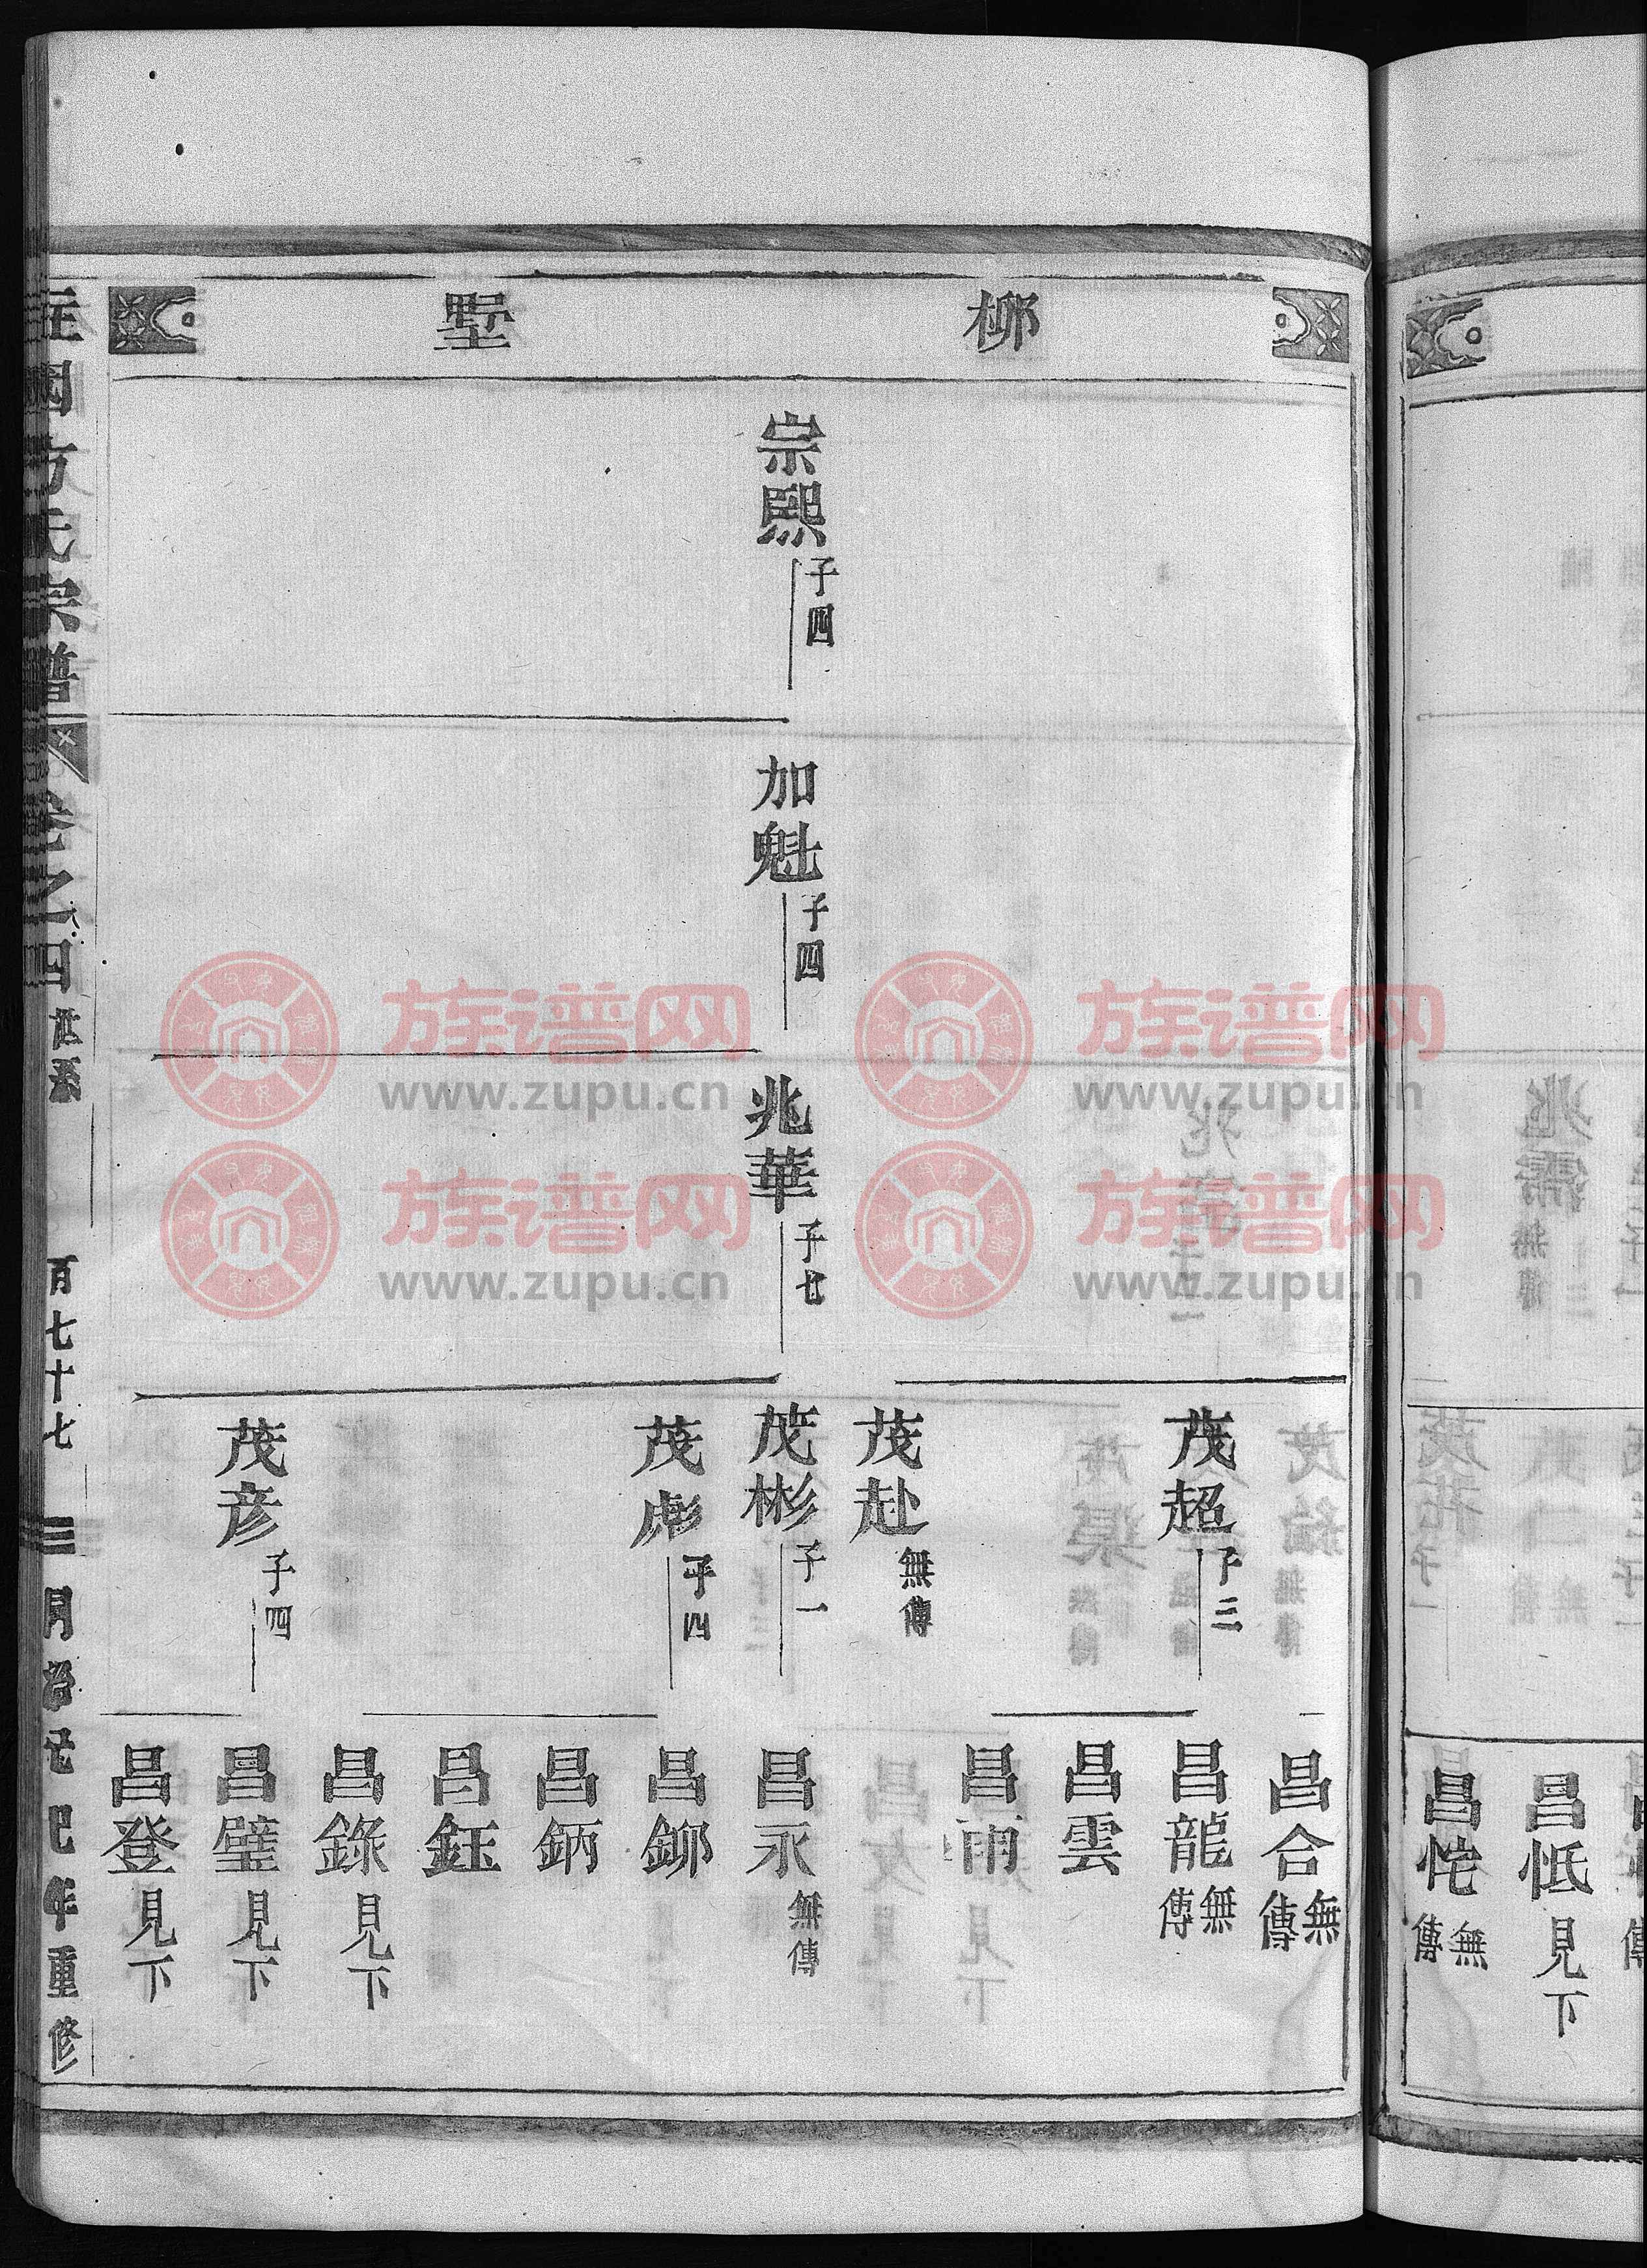 柳
墅
宗熙 子四
加魁 子四
兆華 子七
茂超 子三
茂赴 無傳
茂彬 子一
茂彪 子四
茂彦 子四
昌合 無傳
昌龍 無傳
昌雲
昌雨
昌永 無傳
昌鉚
昌鈵
昌鈺
昌錄 見下
昌璧 見下
昌登 見下
方氏宗譜
卷之四 世系
百七十七
巳年重修
族谱网
www.zupu.cn
族谱网
www.zupu.cn
族谱网
www.zupu.cn
族谱网
www.zupu.cn
昌怟 見下
昌㤞 無傳